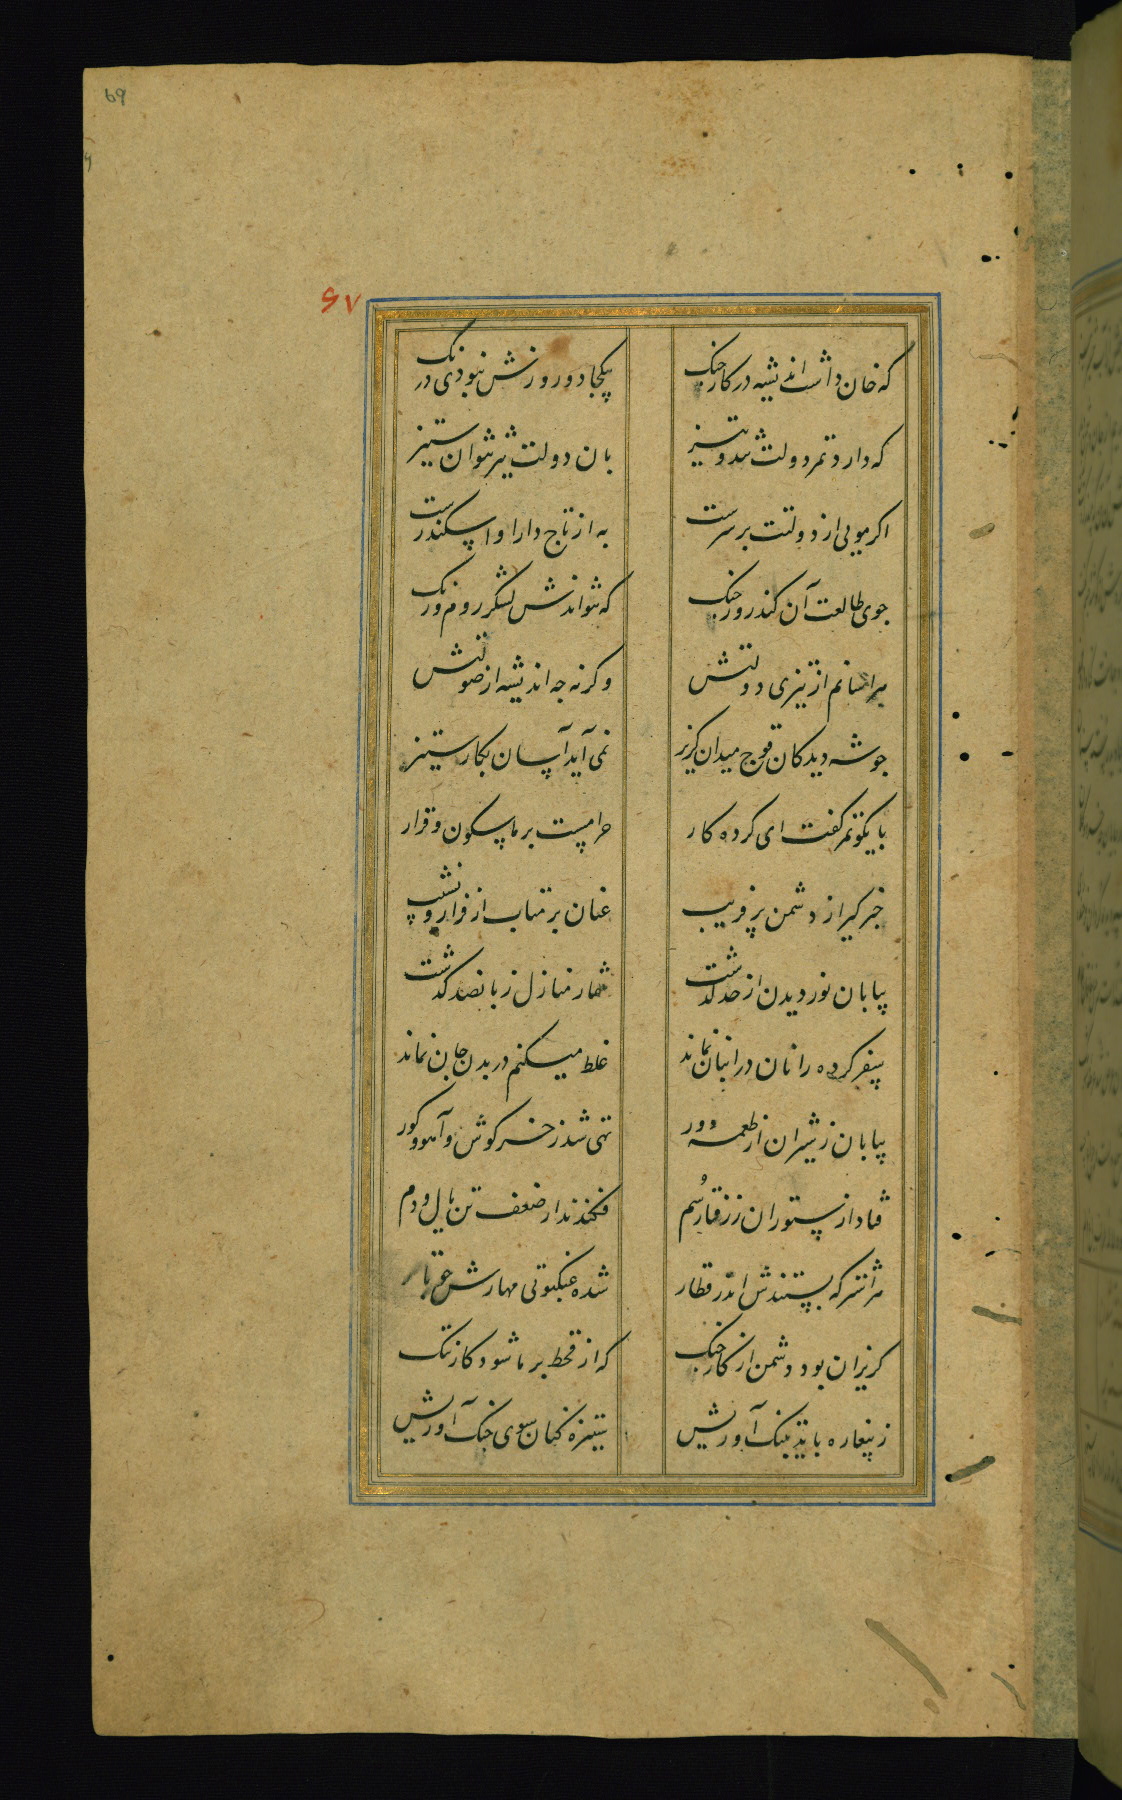 69
۶۷
که خان داشت اندیشه در کار جنک بیکجا دو روزش نبودی درنک
که دارد تمر دولت تند و تیز بان دولت تیز نتوان ستیز
اکر مویی از دولتت بر سرست به از تاج دارا و اسکندرست
جوی طالعت آن کند روز جنک که نتواندش لشکر روم و زنک
هراسانم از تیزی دولتش وکرنه جه اندیشه از صولتش
جو شه دید کان قوج میدان کریز نمی آید آسان بکار ستیز
بایکو تمر کفت ای کرده کار حرامست بر ما سکون و قرار
خبر کیر از دشمن پر فریب عنان بر متاب از فراز و نشیب
بیابان نوردیدن از حد کذشت شمار منازل ز پانصد کذشت
سفر کرده را نان در انبان نماند غلط میکنم در بدن جان نماند
بیابان ز شیران از طعمه دور تهی شد ز خرکوش و آهو و کور
فتاد از ستوران ز رفتار سم فکندند از ضعف تن یال و دم
هر اشتر که بستندش اندر قطار شده عنکبوتی مهارش جو تار
کریزان بود دشمن از کار جنک که از قحط بر ما شود کار تنک
ز پیغاره باید بتنک آوریش ستیزه کنان سوی جنک آوریش